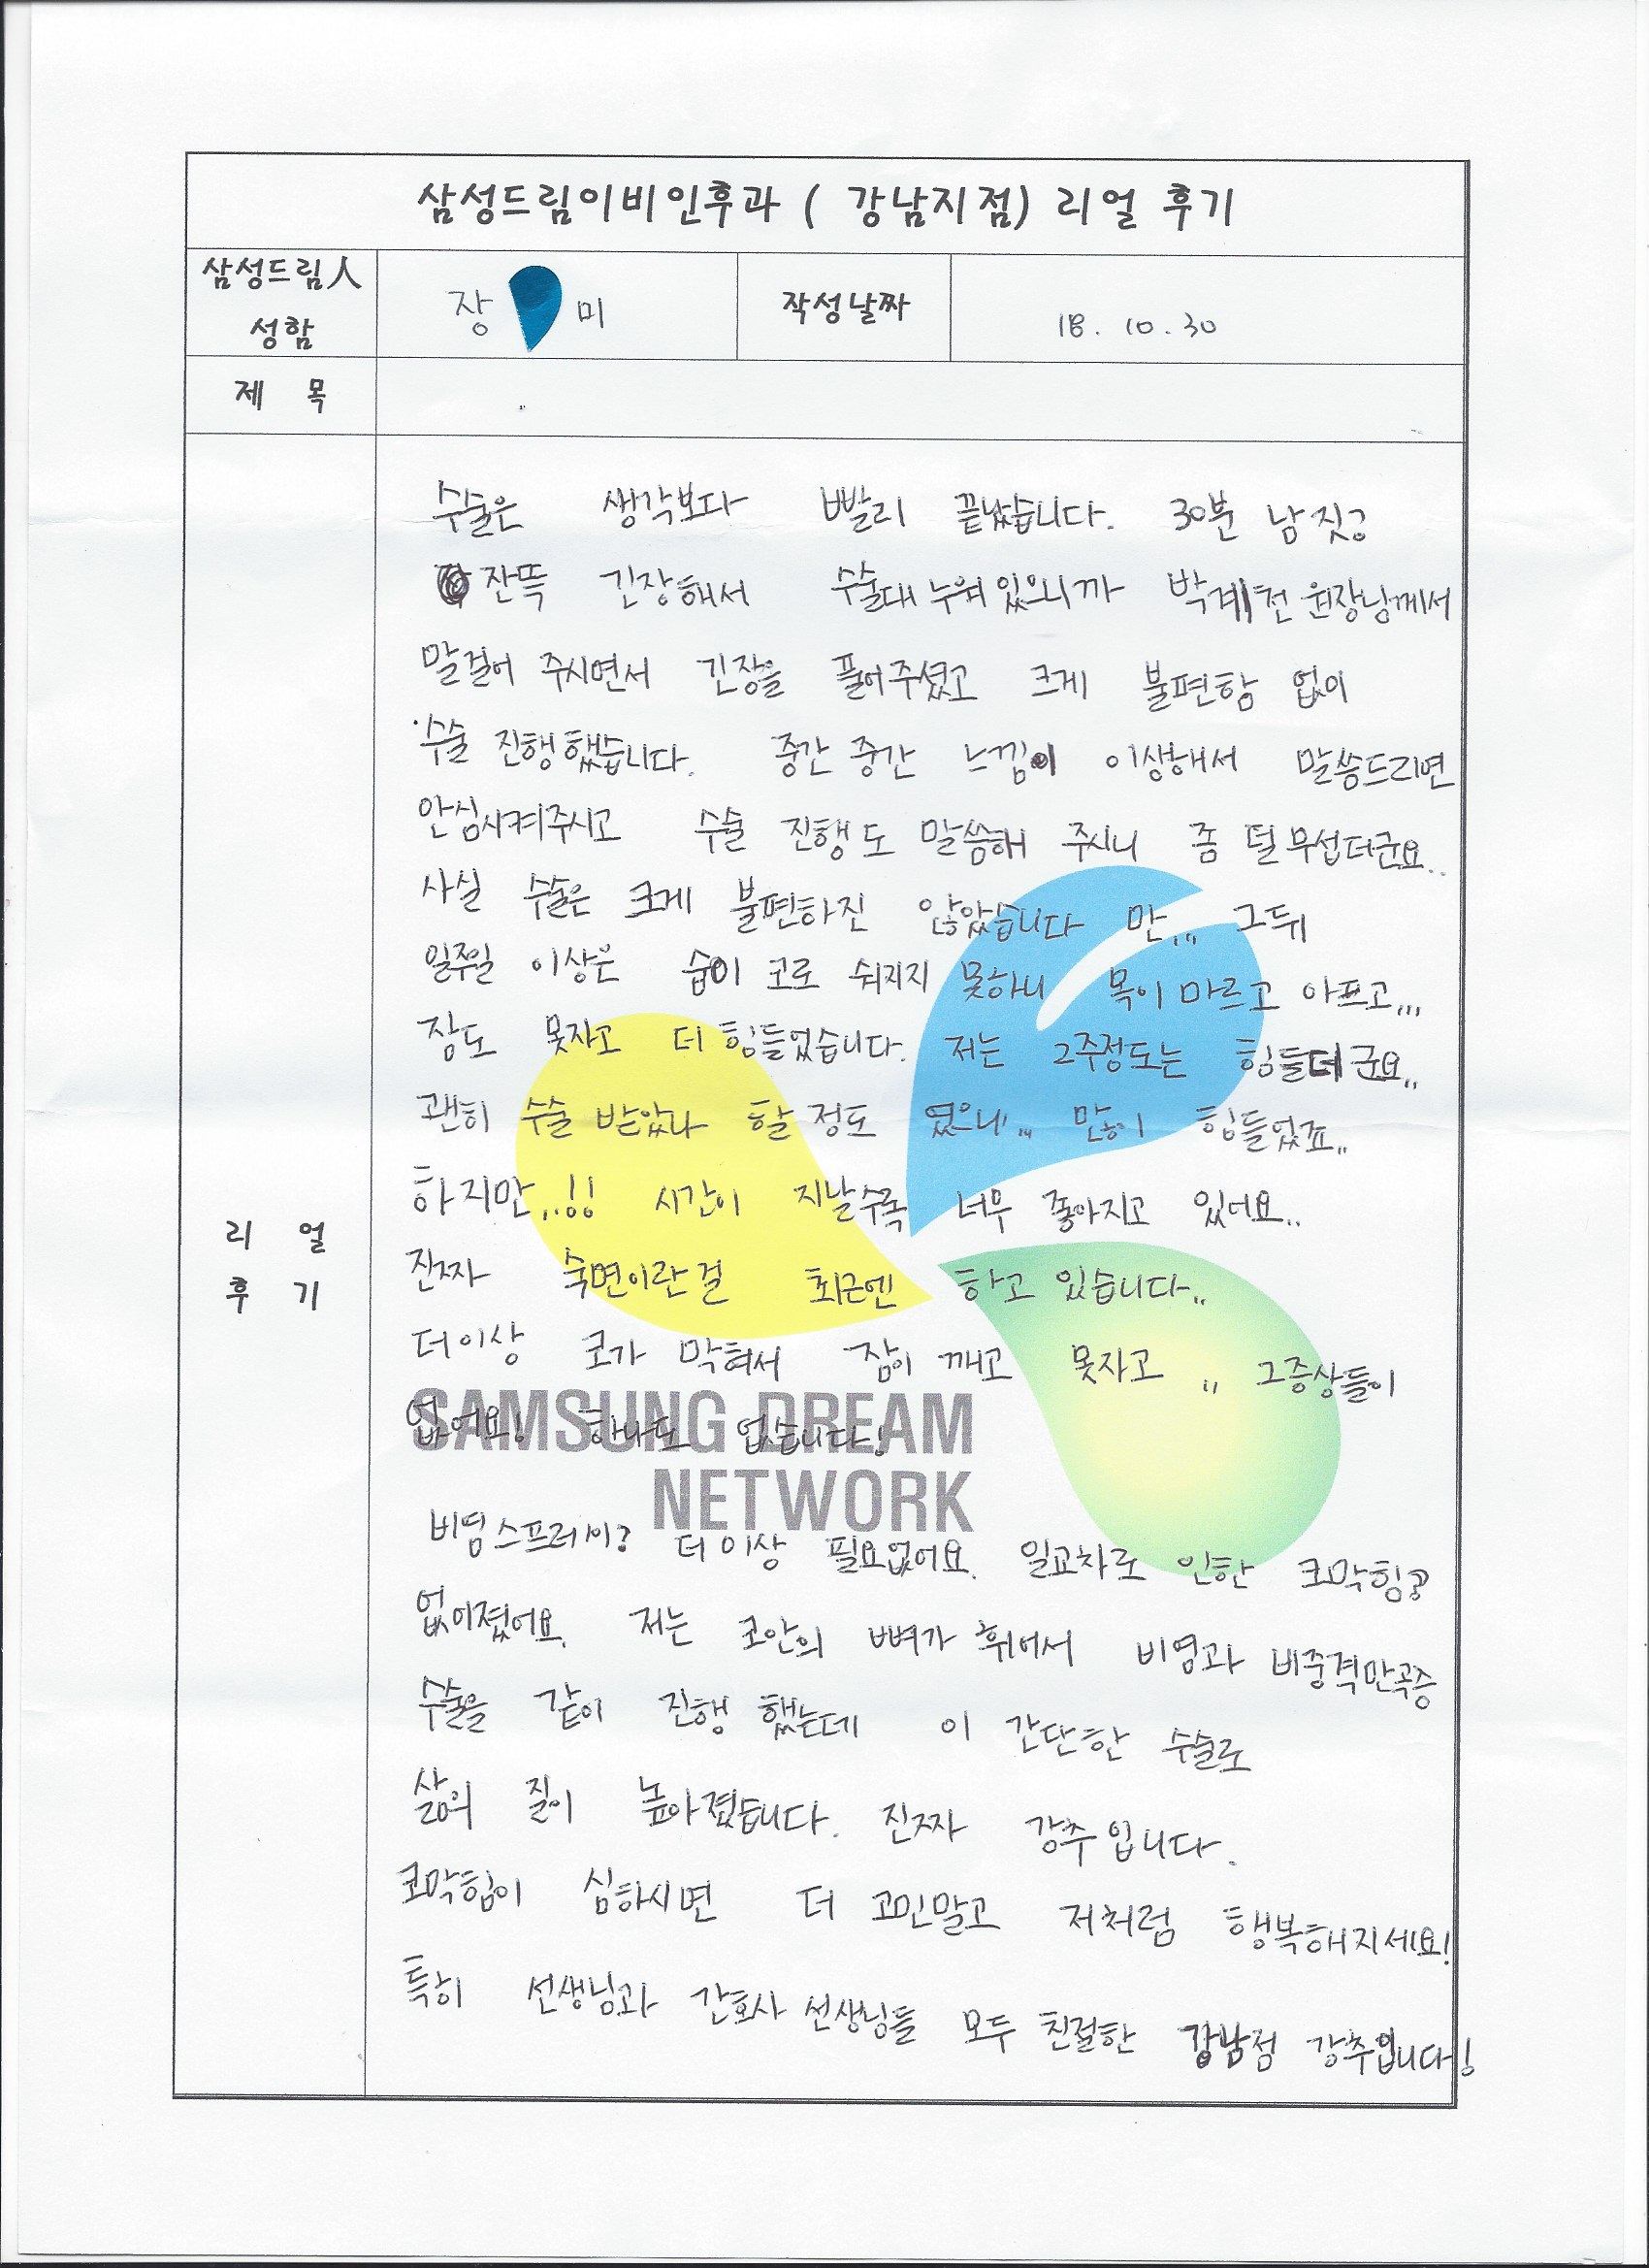 삼성드림이비인후과 ( 강남지점) 리얼 후기
삼성드림人
성함
장 미
작성날짜
18. 10. 30
제 목
리 얼
후 기
수술은 생각보다 빨리 끝났습니다. 30분 남짓?
잔뜩 긴장해서 수술대 누워있으니까 박계전 원장님께서
말걸어 주시면서 긴장을 풀어주셨고 크게 불편함 없이
수술 진행했습니다. 중간 중간 느낌이 이상해서 말씀드리면
안심시켜주시고 수술 진행도 말씀해 주시니 좀 덜 무섭더군요..
사실 수술은 크게 불편하진 않았습니다 만... 그뒤
일주일 이상은 숨이 코로 쉬지지 못하니 목이 마르고 아프고...
잠도 못자고 더 힘들었습니다. 저는 2주정도는 힘들데군요..
괜히 수술 받았나 할 정도 였으니... 많이 힘들었죠..
하지만..!! 시간이 지날수록 너무 좋아지고 있어요..
진짜 숙면이란걸 최근엔 하고 있습니다..
더이상 코가 막혀서 잠이 깨고 못자고 .. 그증상들이
없어요! 하나도 없습니다!
SAMSUNG DREAM
NETWORK
비염스프레이? 더이상 필요없어요. 일교차로 인한 코막힘?
없어졌어요. 저는 코안의 뼈가 휘어서 비염과 비중격만곡증
수술을 같이 진행 했는데 이 간단한 수술로
삶의 질이 높아졌습니다. 진짜 강추입니다.
코막힘이 심하시면 더 고민말고 저처럼 행복해지세요!
특히 선생님과 간호사 선생님들 모두 친절한 강남점 강추입니다!